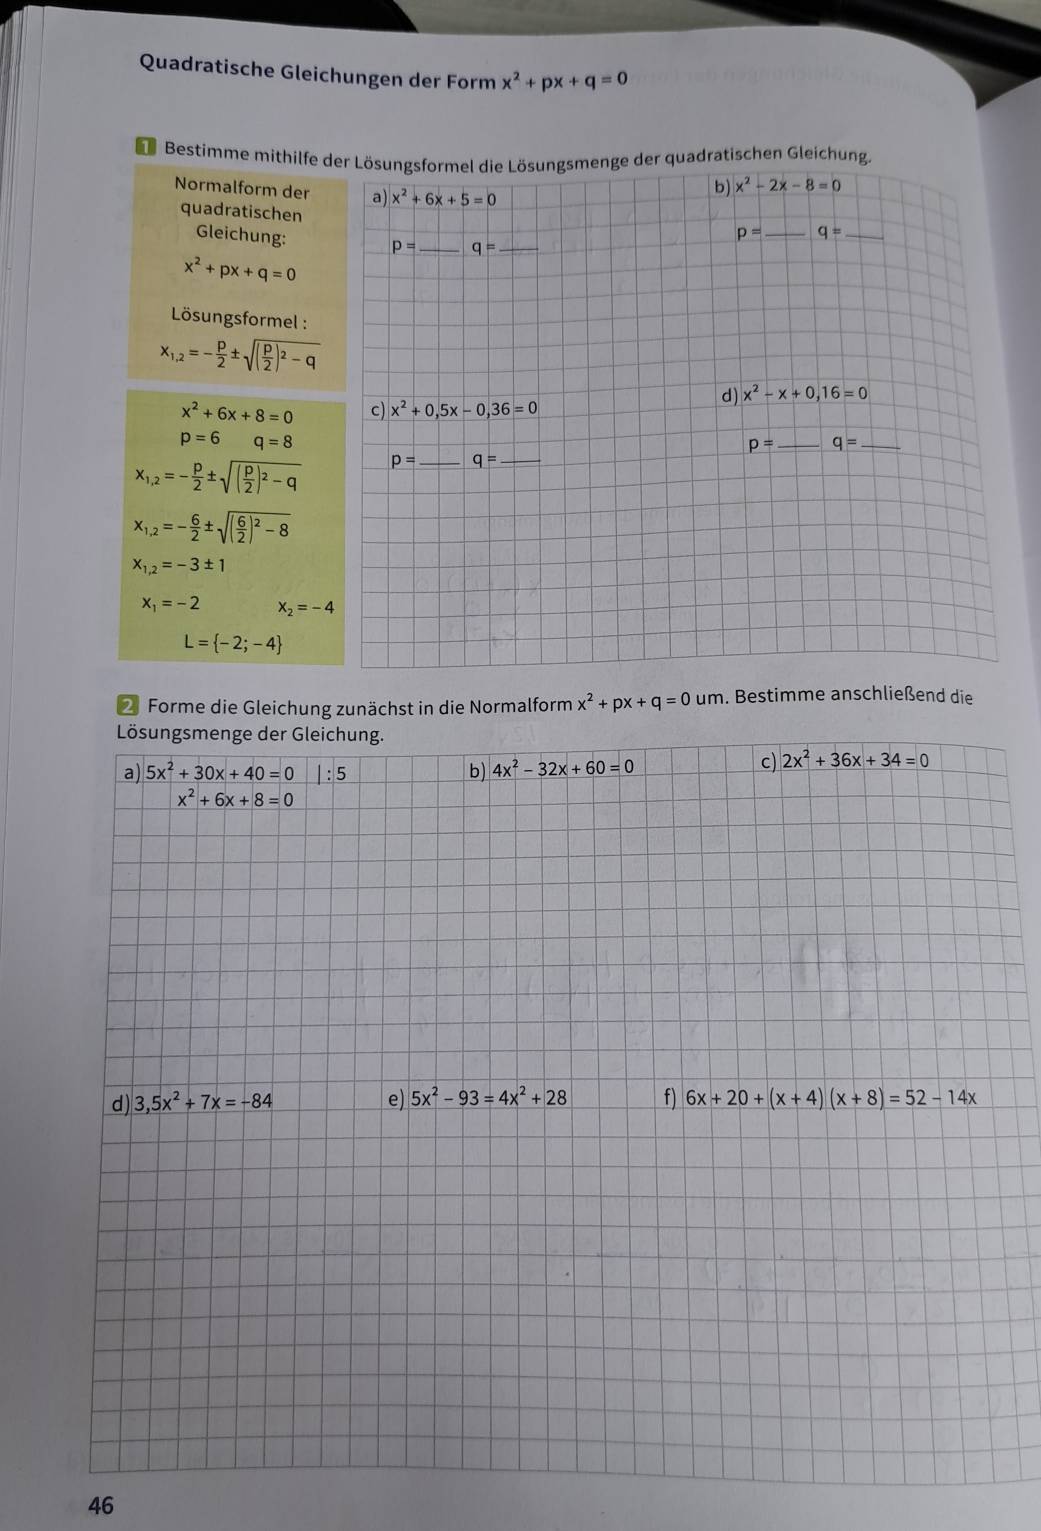 Quadratische Gleichungen der Form x² + px + q = 0
1 Bestimme mithilfe der Lösungsformel die Lösungsmenge der quadratischen Gleichung.
Normalform der
quadratischen
Gleichung:
x² + px + q = 0
Lösungsformel :
x₁,₂ = − p/2 ± √((p/2)² − q)
x² + 6x + 8 = 0
p = 6 q = 8
x₁,₂ = − p/2 ± √((p/2)² − q)
x₁,₂ = − 6/2 ± √((6/2)² − 8)
x₁,₂ = − 3 ± 1
x₁ = − 2 x₂ = − 4
L = {− 2; − 4}
a) x² + 6x + 5 = 0
p = ____ q = ____
b) x² − 2x − 8 = 0
p = ____ q = ____
c) x² + 0,5x − 0,36 = 0
p = ____ q = ____
d) x² − x + 0,16 = 0
p = ____ q = ____
2 Forme die Gleichung zunächst in die Normalform x² + px + q = 0 um. Bestimme anschließend die
Lösungsmenge der Gleichung.
a) 5x² + 30x + 40 = 0 | : 5
x² + 6x + 8 = 0
b) 4x² − 32x + 60 = 0
c) 2x² + 36x + 34 = 0
d) 3,5x² + 7x = −84
e) 5x² − 93 = 4x² + 28
f) 6x + 20 + (x + 4) (x + 8) = 52 − 14x
46